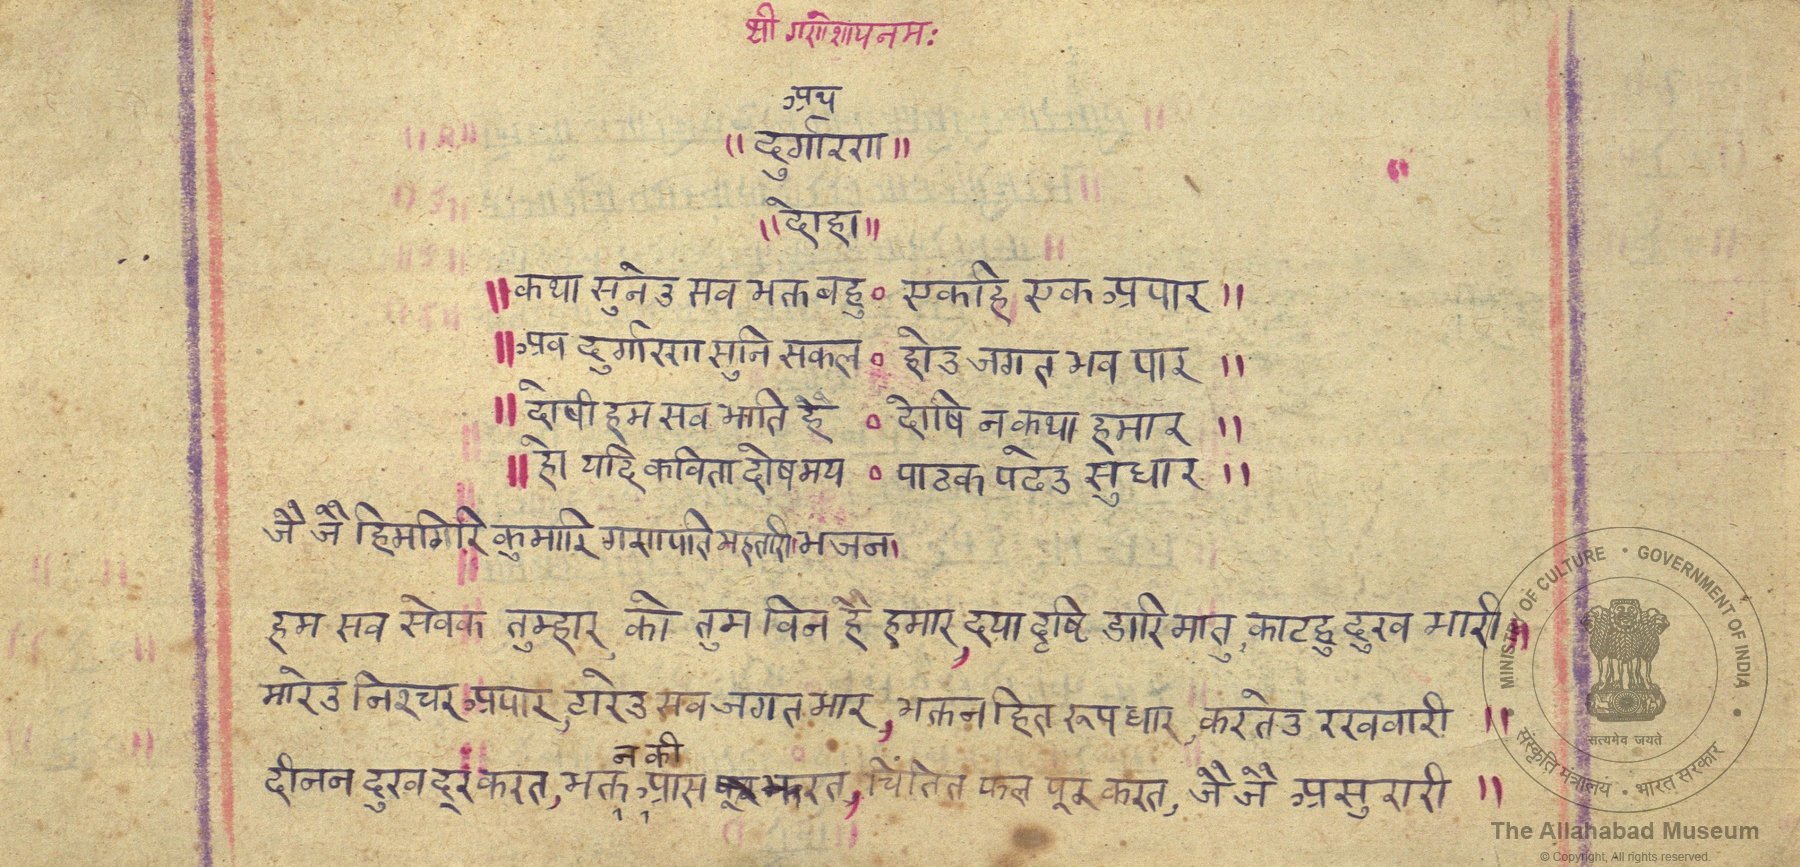 श्री गणेशाय नमः
अथ
॥ दुर्गायण ॥
॥ दोहा ॥
॥ कथा सुनेउ सव भक्त बहु ० एकहि एक अपार ॥
॥ अव दुर्गायण सुनि सकल ० होउ जगत भव पार ॥
॥ दोषी हम सव भाति है ० दोषि न कथा हमार ॥
॥ हो यदि कविता दोषमय ० पाठक पढेउ सुधार ॥
जै जै हिमगिरि कुमारि गणपति महतारी। भजन।
हम सव सेवक तुम्हार, को तुम विन है हमार, दया दृष्टि डारि मातु, काटहु दुख भारी ॥
मारेउ निश्चर अपार, टारेउ सव जगत भार, भक्तन हित रूप धार, करतेउ रखवारी ॥
दीनन दुख दूर करत, भक्तन की आस भरत, चिंतित फल पूर करत, जै जै असुरारी ॥
MINISTRY OF CULTURE • GOVERNMENT OF INDIA •
सत्यमेव जयते
संस्कृति मंत्रालय • भारत सरकार
The Allahabad Museum
© Copyright, All rights reserved.